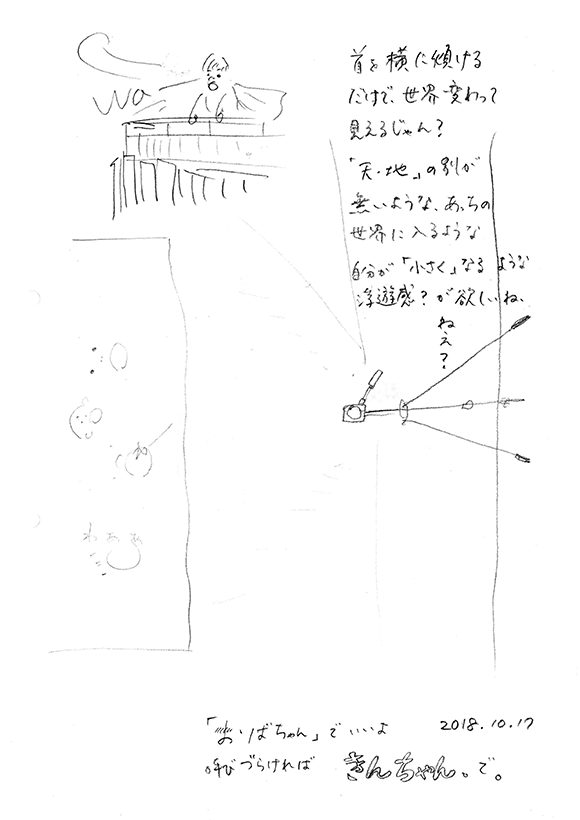 wa
首を横に傾ける
だけで、世界変わって
見えるじゃん？
「天・地」の別が
無いような、あっちの
世界に入るような
自分が「小さく」なるような
浮遊感？が欲しいね、
ねぇ？
わぁぁ
ばちゃん」でいいよ
2018.10.17
呼びづらければ
きんちゃん。で。